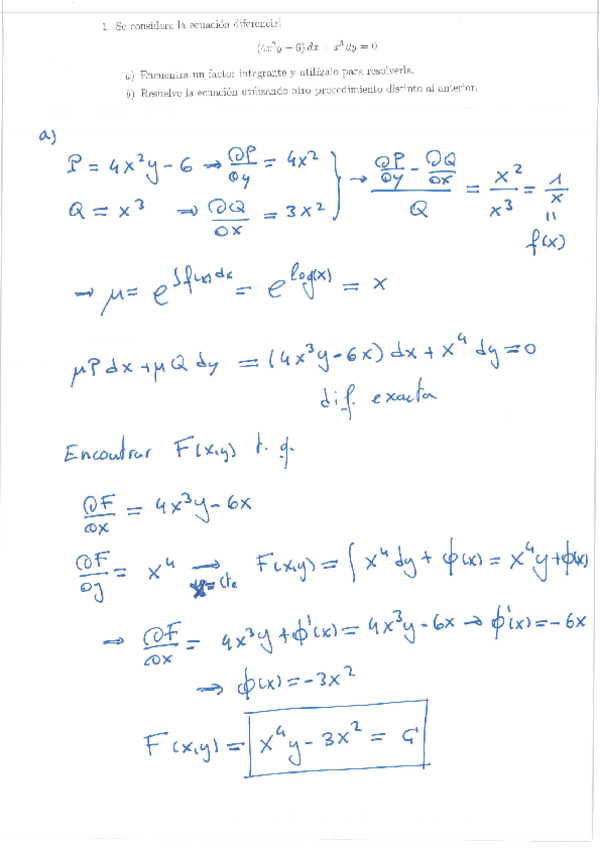 1. Se considera la ecuación diferencial
(4x²y − 6) dx + x³ dy = 0
a) Encuentra un factor integrante y utilízalo para resolverla.
b) Resuelve la ecuación utilizando otro procedimiento distinto al anterior.
a)
P = 4x²y − 6 → ∂P/∂y = 4x²
Q = x³ → ∂Q/∂x = 3x² } → (∂P/∂y − ∂Q/∂x)/Q = x²/x³ = 1/x
= f(x)
→ μ = e^∫f(x)dx = e^log(x) = x
μPdx + μQdy = (4x³y − 6x) dx + x⁴ dy = 0
dif. exacta
Encontrar F(x,y) t.q.
∂F/∂x = 4x³y − 6x
∂F/∂y = x⁴ → x=cte F(x,y) = ∫x⁴dy + φ(x) = x⁴y + φ(x)
→ ∂F/∂x = 4x³y + φ'(x) = 4x³y − 6x → φ'(x) = −6x
→ φ(x) = −3x²
F(x,y) = x⁴y − 3x² =